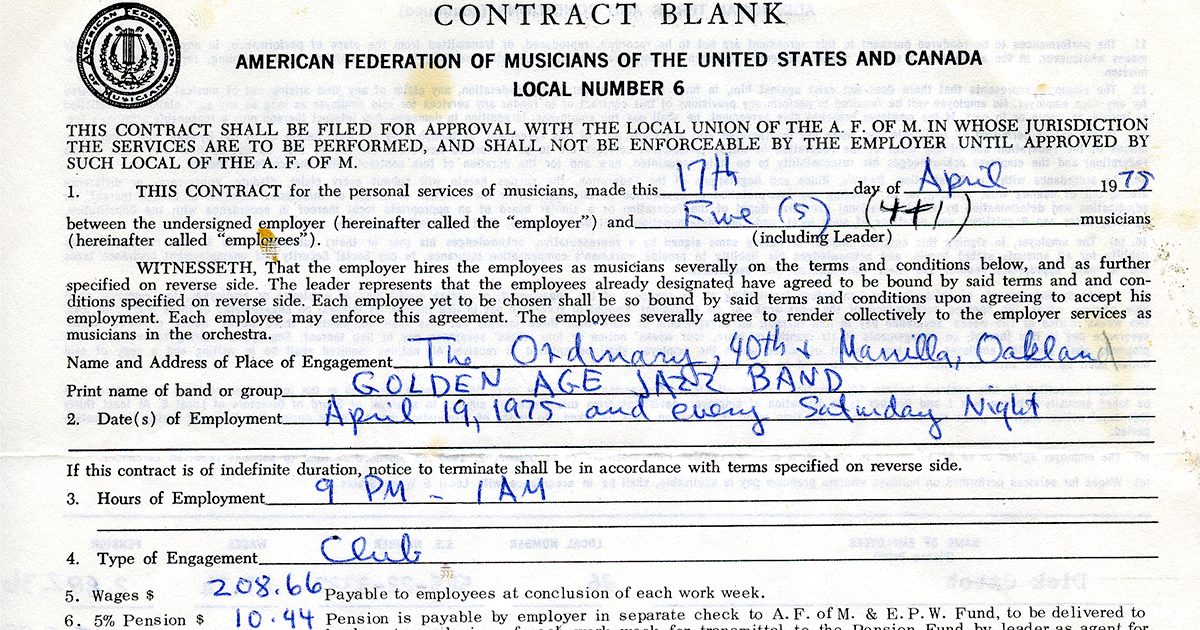 CONTRACT BLANK
AMERICAN FEDERATION OF MUSICIANS
AMERICAN FEDERATION OF MUSICIANS OF THE UNITED STATES AND CANADA
LOCAL NUMBER 6
THIS CONTRACT SHALL BE FILED FOR APPROVAL WITH THE LOCAL UNION OF THE A. F. OF M. IN WHOSE JURISDICTION
THE SERVICES ARE TO BE PERFORMED, AND SHALL NOT BE ENFORCEABLE BY THE EMPLOYER UNTIL APPROVED BY
SUCH LOCAL OF THE A. F. OF M.
1. THIS CONTRACT for the personal services of musicians, made this 17th day of April 1975
between the undersigned employer (hereinafter called the “employer”) and Five (5) (4+1) musicians
(hereinafter called “employees”). (including Leader)
WITNESSETH, That the employer hires the employees as musicians severally on the terms and conditions below, and as further
specified on reverse side. The leader represents that the employees already designated have agreed to be bound by said terms and and con-
ditions specified on reverse side. Each employee yet to be chosen shall be so bound by said terms and conditions upon agreeing to accept his
employment. Each employee may enforce this agreement. The employees severally agree to render collectively to the employer services as
musicians in the orchestra.
Name and Address of Place of Engagement The Ordinary, 40th & Manilla, Oakland
Print name of band or group GOLDEN AGE JAZZ BAND
2. Date(s) of Employment April 19, 1975 and every Saturday Night
If this contract is of indefinite duration, notice to terminate shall be in accordance with terms specified on reverse side.
3. Hours of Employment 9 PM - 1 AM
4. Type of Engagement Club
5. Wages $ 208.66 Payable to employees at conclusion of each work week.
6. 5% Pension $ 10.44 Pension is payable by employer in separate check to A. F. of M. & E. P. W. Fund, to be delivered to